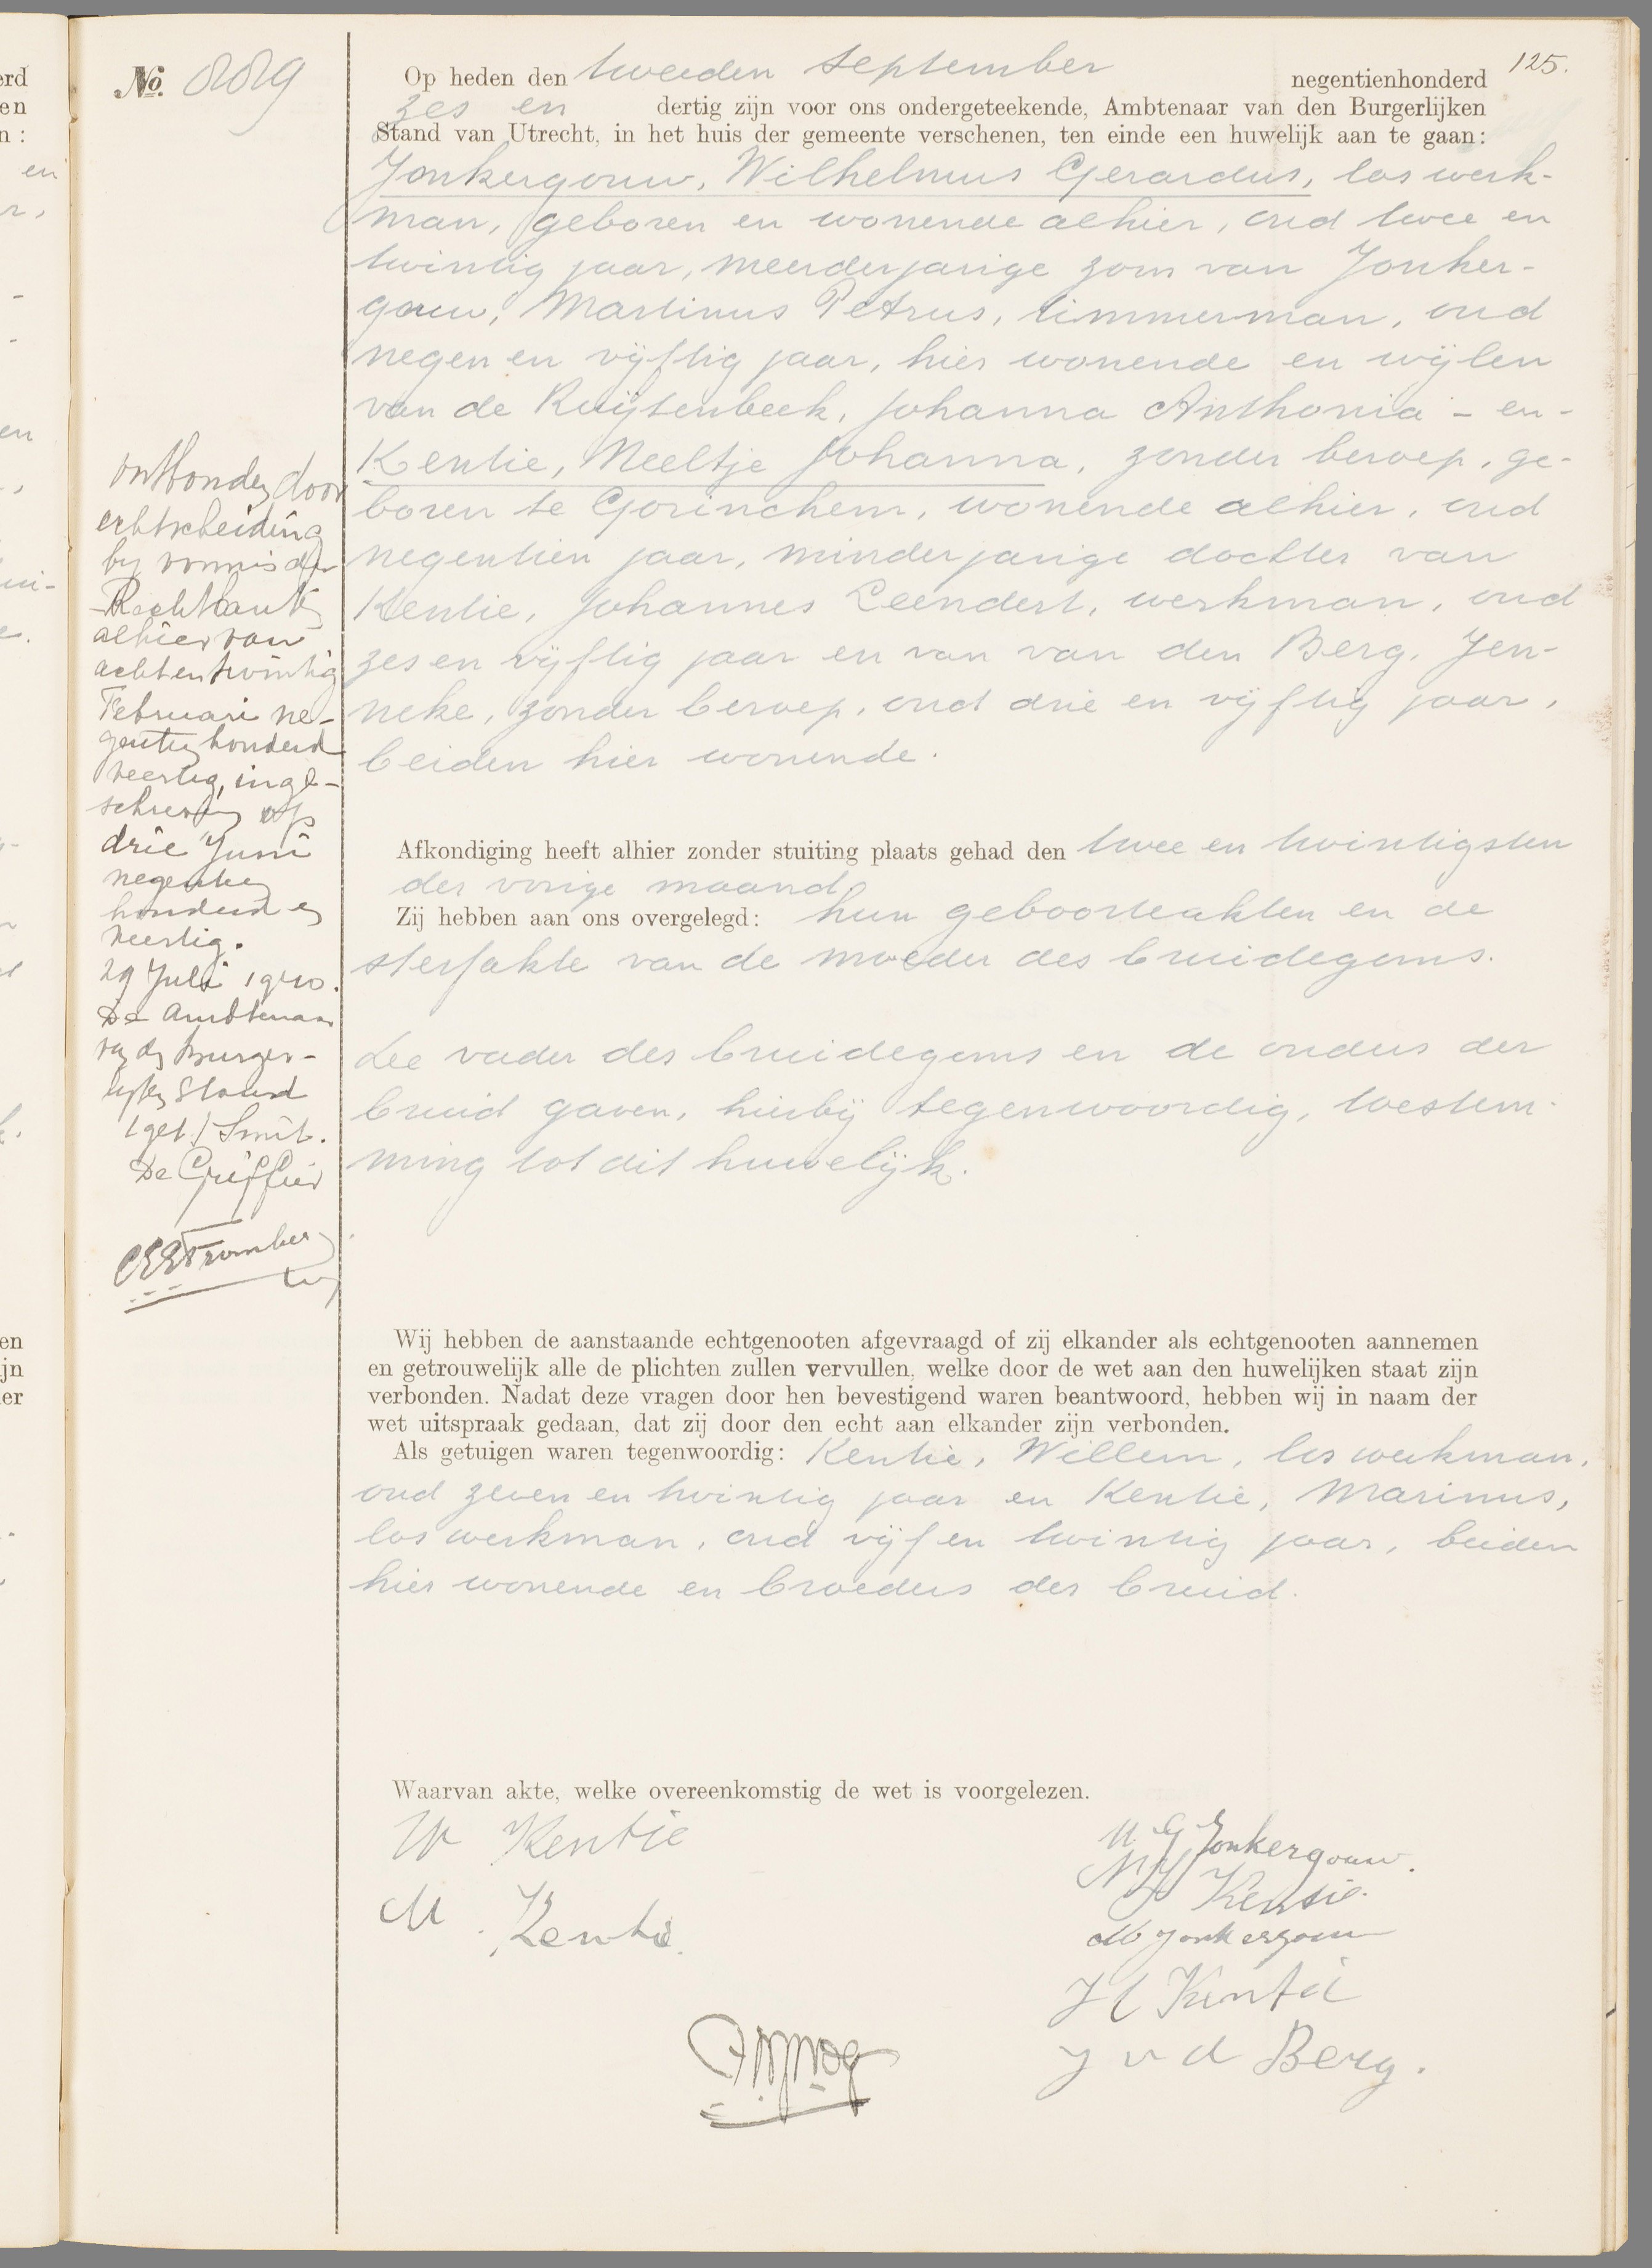 125.
No. 889
Op heden den tweeden September negentienhonderd
zes en dertig zijn voor ons ondergeteekende, Ambtenaar van den Burgerlijken
Stand van Utrecht, in het huis der gemeente verschenen, ten einde een huwelijk aan te gaan:
Jonkergouw, Wilhelmus Gerardus, los werk-
man, geboren en wonende alhier, oud twee en
twintig jaar, meerderjarige zoon van Jonker-
gouw, Martinus Petrus, timmerman, oud
negen en vijftig jaar, hier wonende en wijlen
van de Ruijtenbeek, Johanna Anthonia - en -
Kentie, Neeltje Johanna, zonder beroep, ge-
boren te Gorinchem, wonende alhier, oud
negentien jaar, minderjarige dochter van
Kentie, Johannes Leendert, werkman, oud
zes en vijftig jaar en van van den Berg, Jen-
neke, zonder beroep, oud drie en vijftig jaar,
beiden hier wonende.
Afkondiging heeft alhier zonder stuiting plaats gehad den twee en twintigsten
der vorige maand.
Zij hebben aan ons overgelegd: hun geboorteakten en de
sterfakte van de moeder des bruidegoms.
De vader des bruidegoms en de ouders der
bruid gaven, hierbij tegenwoordig, toestem-
ming tot dit huwelijk.
Wij hebben de aanstaande echtgenooten afgevraagd of zij elkander als echtgenooten aannemen
en getrouwelijk alle de plichten zullen vervullen, welke door de wet aan den huwelijken staat zijn
verbonden. Nadat deze vragen door hen bevestigend waren beantwoord, hebben wij in naam der
wet uitspraak gedaan, dat zij door den echt aan elkander zijn verbonden.
Als getuigen waren tegenwoordig: Kentie, Willem, los werkman,
oud zeven en twintig jaar en Kentie, Marinus,
los werkman, oud vijf en twintig jaar, beiden
hier wonende en broeders der bruid.
Waarvan akte, welke overeenkomstig de wet is voorgelezen.
W Kentie
M. Kentie
W G Jonkergouw.
N J Kentie.
M Jonkergouw
J L Kentie
J v d Berg.
ontbonden door
echtscheiding
bij vonnis der
Rechtbank
alhier van
achtentwintig
Februari ne-
gentienhonderd
veertig, inge-
schreven op
drie Juni
negentien
honderd en
veertig.
29 Juli 1940.
De Ambtenaar
van den Burger-
lijken Stand
(get.) Smit.
De Griffier
erd
en
n:
en
en
ijn
er